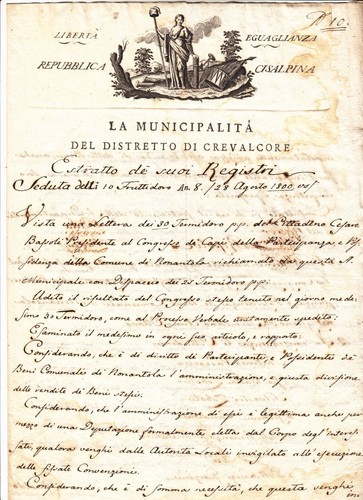 N° 10.
LIBERTÀ EGUAGLIANZA
REPUBBLICA CISALPINA
LA MUNICIPALITÀ
DEL DISTRETTO DI CREVALCORE
Estratto de suoi Registri
Seduta delli 10 Fruttidoro An. 8. /28 Agosto 1800. vs/
Vista una Lettera dei 30 Termidoro p.p. del Cittadino Cesare
Bassoli Presidente al Congresso de' Capi della Partecipanza e
della Comune di Nonantola richiamato da questa A.
Municipale con Dispaccio dei 25 Termidoro p.p.
Udito il risultato del Congresso stesso tenuto nel giorno mede-
simo 30 Termidoro, come al Processo Verbale esattamente spedito;
Esaminato il medesimo in ogni suo articolo, e rapporto.
Considerando, che è di diritto de' Partecipanti, e Possidenti de'
Beni Comunali di Nonantola l'amministrazione, e giusta divisione
delle rendite de' Beni stessi;
Considerando, che l'amministrazione di essi è legittima anche per
mezzo di una Deputazione formalmente eletta dal Corpo degl'interes-
sati, qualora venghi dalle Autorità Locali invigilato all'esecuzione
delle fissate Convenzioni.
Considerando, che è di somma necessità, che questa venghi